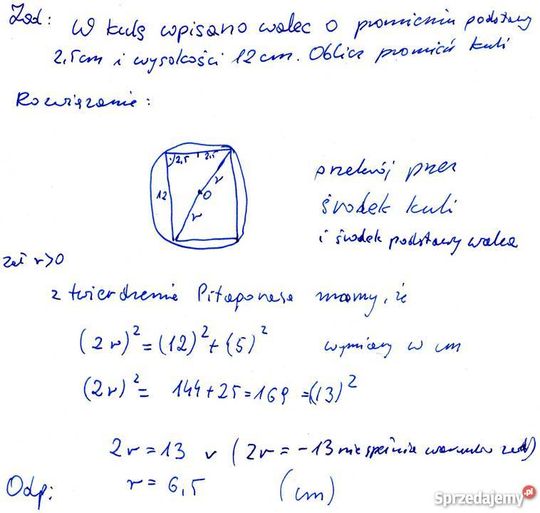 Zad: W kulę wpisano walec o promieniu podstawy
2,5cm i wysokości 12cm. Oblicz promień kuli
Rozwiązanie:
2,5 2,5
12
r
O
r
przekrój przez
środek kuli
i środek podstawy walca
zał r>0
z twierdzenia Pitagorasa mamy, że
(2r)²=(12)²+(5)² wymiary w cm
(2r)²= 144+25=169=(13)²
2r=13 v (2r=-13 nie spełnia warunków zad)
Odp: r=6,5 (cm)
Sprzedajemy.pl